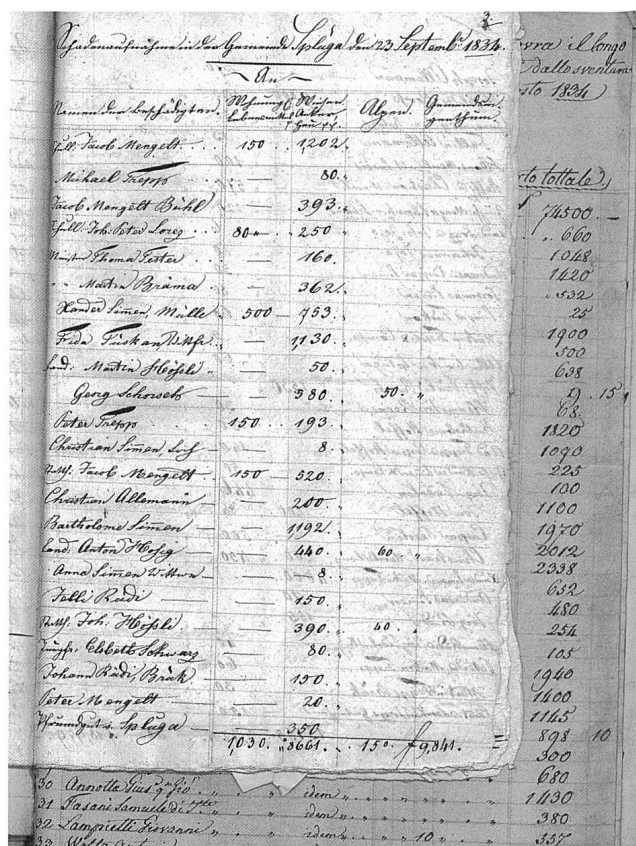 3
Schadenaufnahme in der Gemeinde Splüga den 23 Septemb. 1834.
An
Namen der beschädigten. Wohnung Lebensmittel Wiesen Acker Alpen. Gemeindseigenthum.
Jacob Mengelt. 150 1,202
Michael Trepp — 80.
Jacob Mengelt Bühl — 393.
Joh. Peter Loreg 80 250
Meister Thoma Tester — 160.
" " Martin Bräma — 362.
Xander Simen, Mülle 500 — 753.
Frida — 1,130.
Land: Martin Hößli — 50.
Georg Schorsch — 380. 50.
Peter Trepp 150. 193.
Christian Simen, — 8.
Jacob Mengelt. 150 — 520.
Christian Allemann — 200.
Bartholome Simen — 1192.
Land: Anton Hosig — 440. 60
Anna Simen Wittwe — 8.
Felli Rüdi — 150.
Joh. Hößli — 390. 40.
Jungfr: Elsbeth Schwarz — 80.
Johann Rüdi, Brük — 150.
Peter Mengelt — 20.
Pfrundgut v. Spluga — 350
1,030. 8661. 150. f 9,841.
ovra il longo
dallo sventura
sto 1834
rto tottale
74500. —
660
1048
1420
532
25
1900
500
638
2. 15
68.
1820
1090
225
100
1100
1970
2012
2338
652
480
254
105
1940
1400
1145
898 10
300
680
30 Annotta Gius q. Gio. " " idem " " 1430
31 Fasani Samuele di " " idem " " 380
32 Lampietti Giovanni " " idem " 10 " 357
33